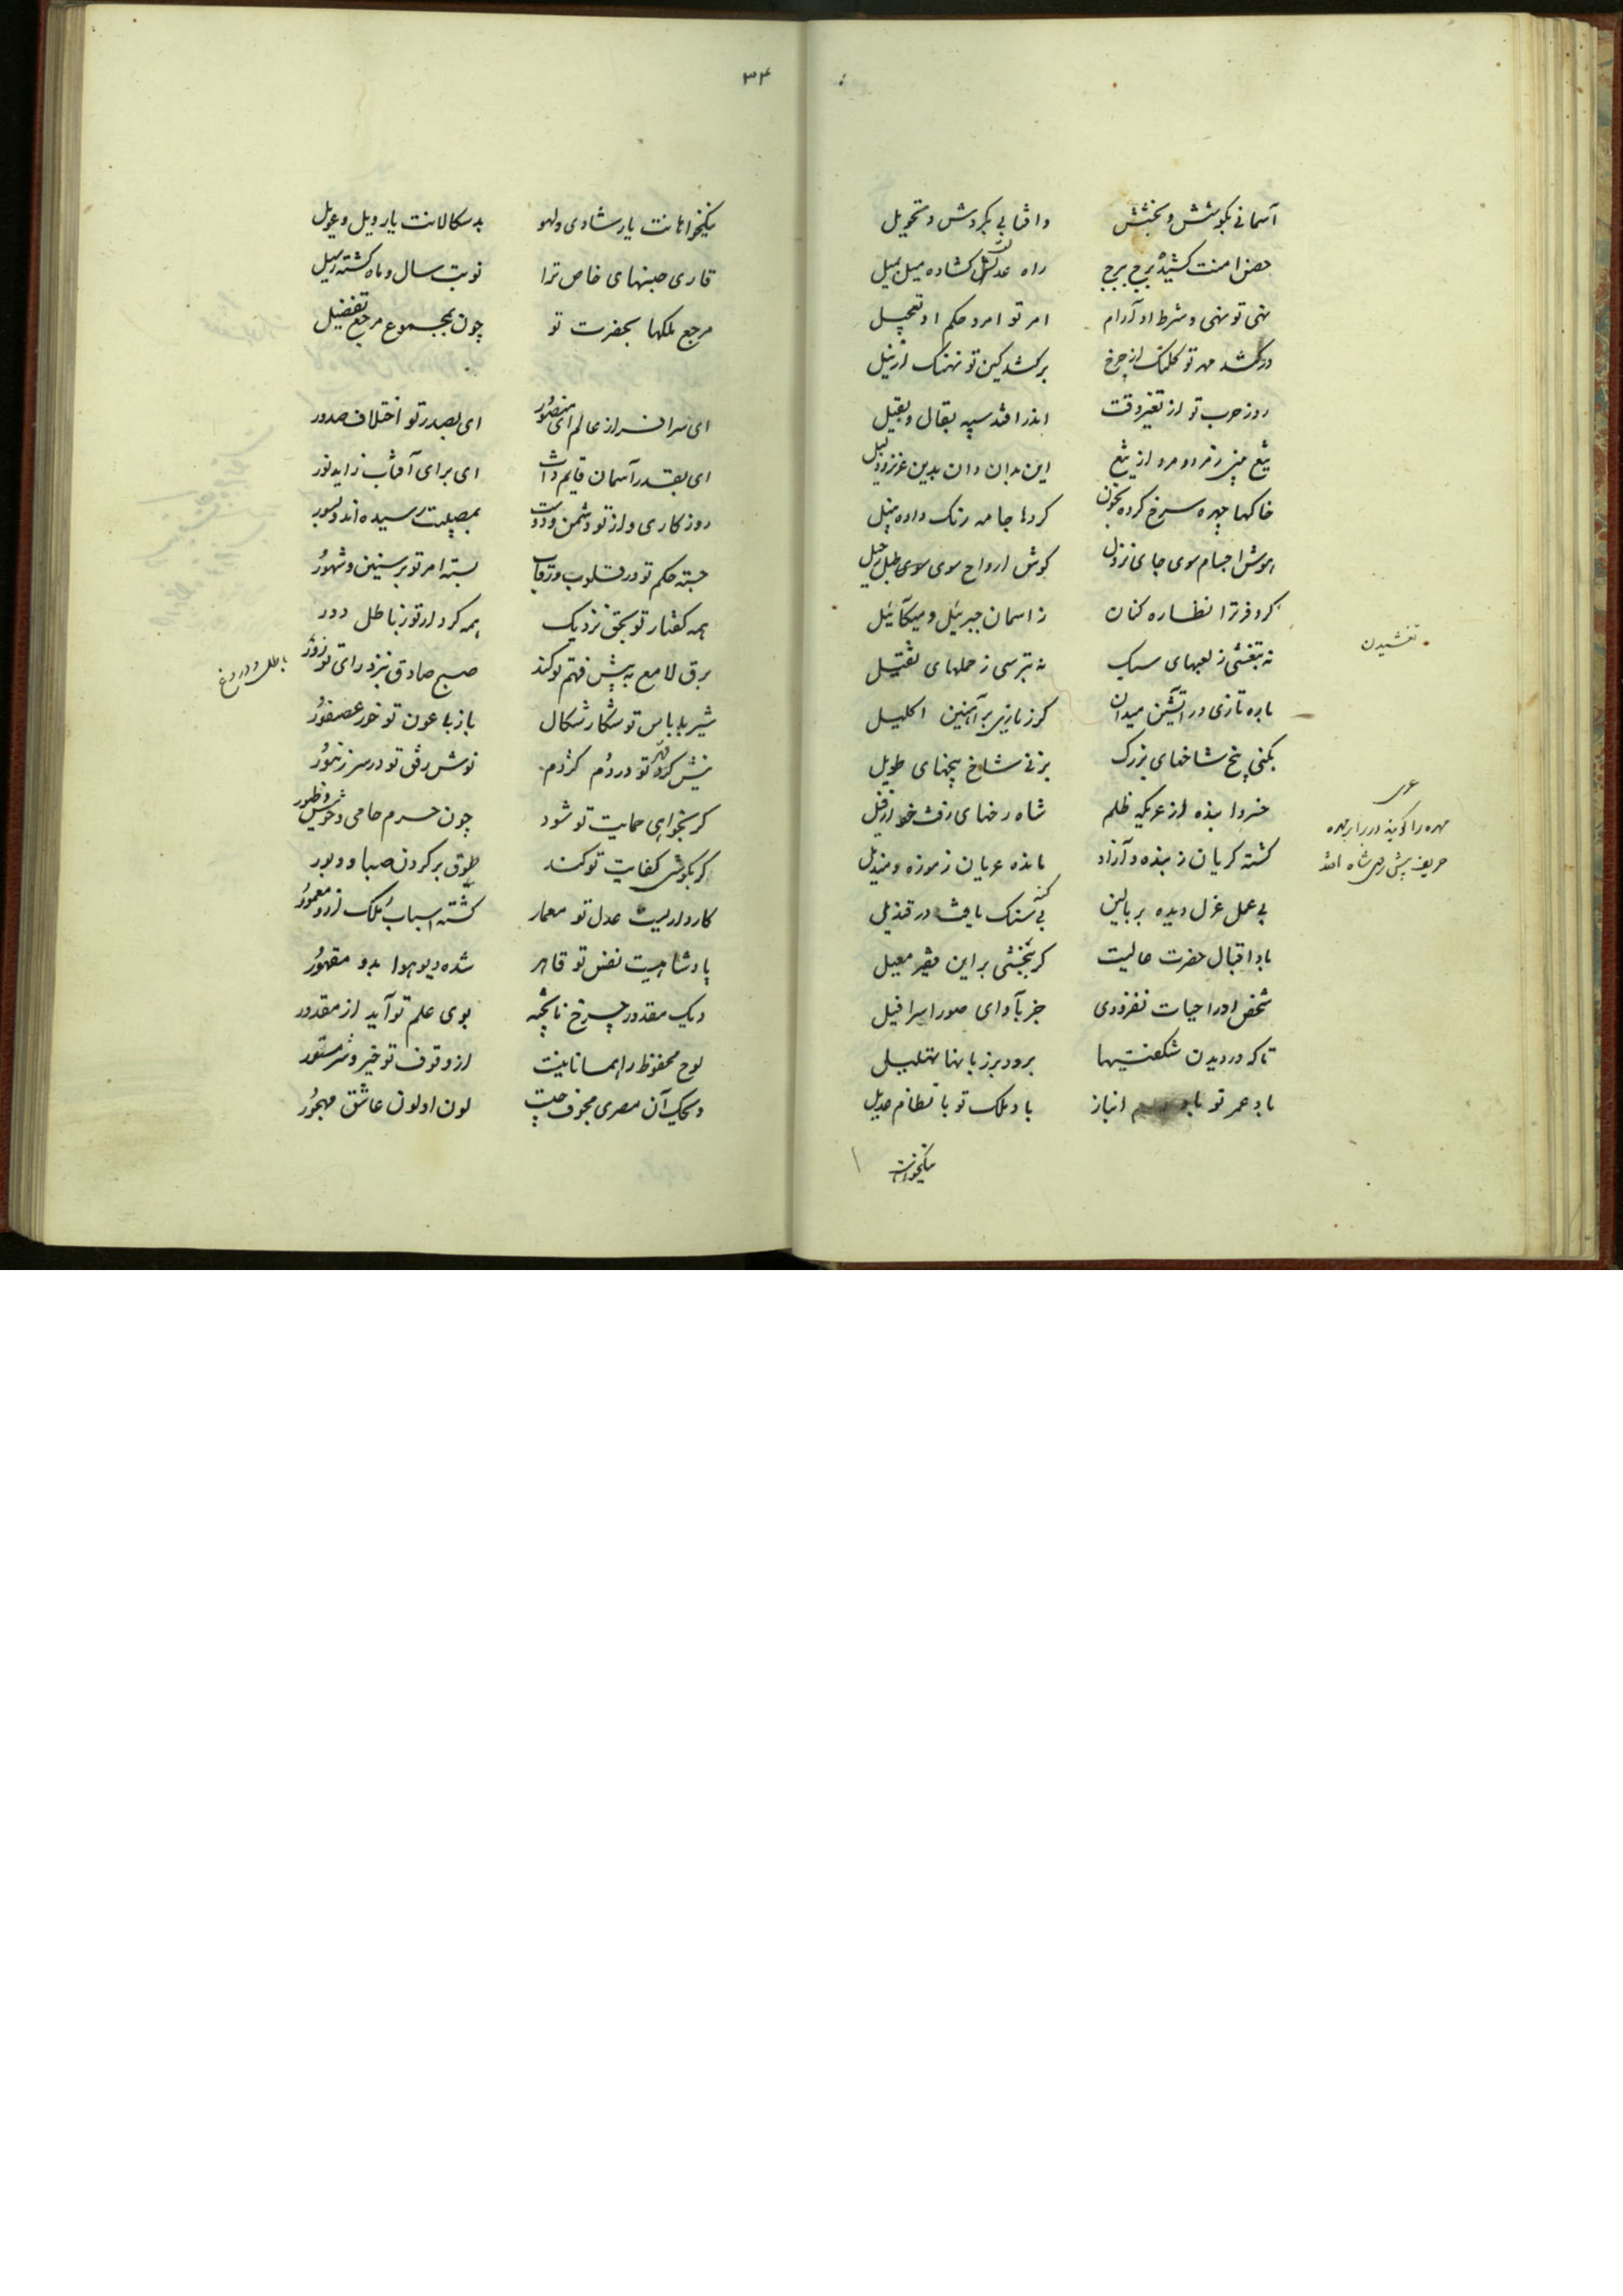 آسمانی بکوشش و بخشش وافتابی بکردش و تحویل
حصن امنت کشیده برج ببرج راه عدلش کشاده میل بمیل
نهی تو نهی و شرط او آرام امر تو امر و حکم او تعجیل
درکشد مهر تو کلنک از چرخ برکشد کین تو نهنک از نیل
روز حرب تو از تغیر وقت اندر افتد سپه بقال و بقیل
تیغ مرد و مرد از تیغ این بدان وان بدین عزیز و ذلیل
خاکها چهره سرخ کرده بخون کردها جامه رنک داده بنیل
هوش اجسام سوی جای نزول کوش ارواح سوی طبل رحیل
کر و فر ترا نظاره کنان ز اسمان جبرئیل و میکآئیل
نه بتفشی ز لعبهای سبک نه بترسی ز حملهای ثقیل
باره تازی در آتشین میدان کرز بازی بر آهنین اکلیل
بکنی بیخ شاخهای بزرک بزنی شاخ بیخهای طویل
خسروا بنده از عریکه ظلم شاه رخهای زفت خورد از فیل
کشته کریان ز بنده و آزاد مانده عریان ز موزه و مندیل
بی عمل عزل دیده بر بالین بی کنه سنک یافته در قندیل
باد اقبال حضرت عالیت کر نبخشی براین فقیر معیل
شخص او را حیات نفزودی جز بآوای صور اسرافیل
تا که در دیدن شکفتیها برود بر زبانها تهلیل
باد عمر تو با انباز باد ملک تو با نظام عدیل
نیکخواهانت
تفشیدن
مهره را کویند در برابر مهره
حریف پیش رخ شاه افتد
۳۴
نیکخواهانت یار شادی و لهو بدسکالانت یار ویل و عویل
قاری جشنهای خاص ترا نوبت سال و ماه کشته رسیل
مرجع ملکها بحضرت تو چون بمجموع مرجع تفضیل
ای سرافراز عالم ای منصور ای بصدر تو اختلاف صدور
ای بقدر آسمان قایم ذات ای برای آفتاب زاید نور
روزکاری و از تو دشمن و دوست بمصیبت رسیده اند و بسور
جسته حکم تو در قلوب و رقاب بسته امر تو بر سنین و شهور
همه کفتار تو بحق نزدیک همه کردار تو ز باطل دور
برق لامع به پیش فهم تو کند صبح صادق بنزد رای تو زور
شیر با باس تو شکار شکال باز با عون تو خور عصفور
نیش کرد قهر تو در دم کژدم نوش رفق تو در سر زنبور
کر بخواهی حمایت تو شود چون حرم حامی وحوش و طیور
کر بکوشی کفایت تو کند طوق بر کردن صبا و دبور
کاردار ایست عدل تو معمار کشته اسباب ملک ازو معمور
پادشاهیست نفس تو قاهر شده دیو هوا بدو مقهور
دیک مقدور چرخ نا پخته بوی علم تو آید از مقدور
لوح محفوظ را همانا نیست از وقوف تو خیر و شر مستور
وسحک آن مصری مجوف چیست لون او لون عاشق مهجور
باطل و دروغ